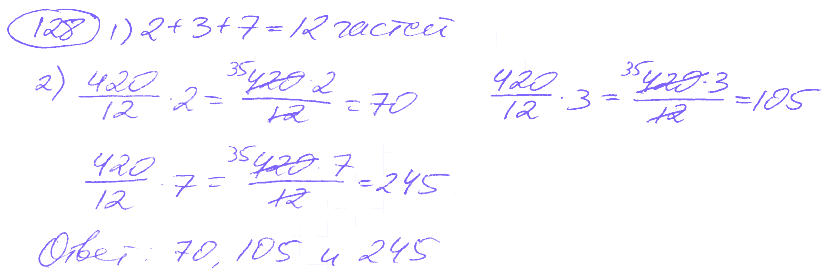 128 1) 2+3+7=12 частей
2) 420/12 · 2 = 35 420·2/12 = 70 420/12 · 3 = 35 420·3/12 = 105
420/12 · 7 = 35 420·7/12 = 245
Ответ: 70, 105 и 245